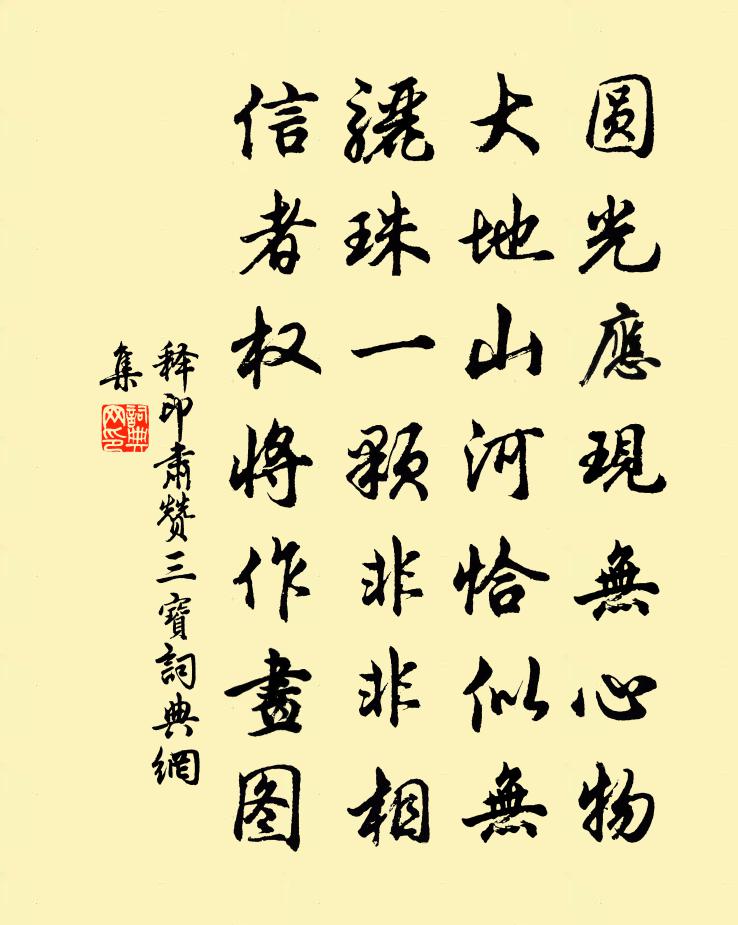 圆光應現無心物
大地山河恰似無
驪珠一顆非非相
信者权將作畫图
释印肅贊三寶詞典網
集
詞典网印